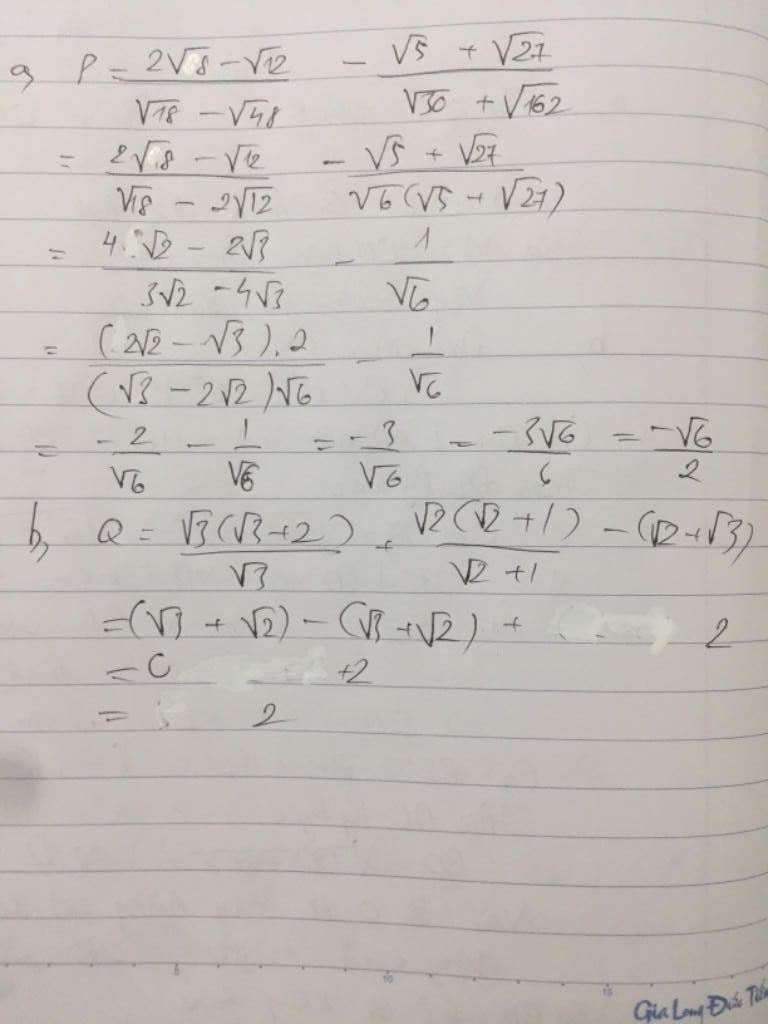 a, P = (2√8 − √12)/(√18 − √48) − (√5 + √27)/(√30 + √162)
= (2√8 − √12)/(√18 − 2√12) − (√5 + √27)/(√6(√5 + √27))
= (4√2 − 2√3)/(3√2 − 4√3) − 1/√6
= ((2√2 − √3).2)/((√3 − 2√2)√6) − 1/√6
= −2/√6 − 1/√6 = −3/√6 = −3√6/6 = −√6/2
b, Q = √3(√3+2)/√3 + √2(√2+1)/(√2+1) − (√2+√3)
= (√3 + √2) − (√3 + √2) + 2
= 0 +2
= 2
5 10 15
Gia Long Đức Tiến